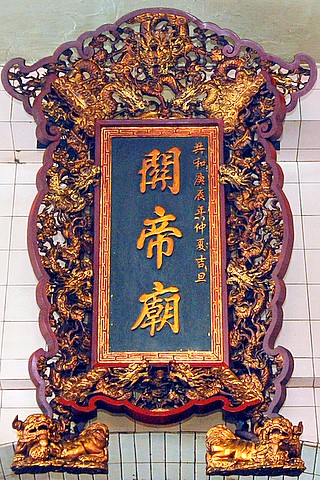 共和庚辰年仲夏吉旦
關帝廟